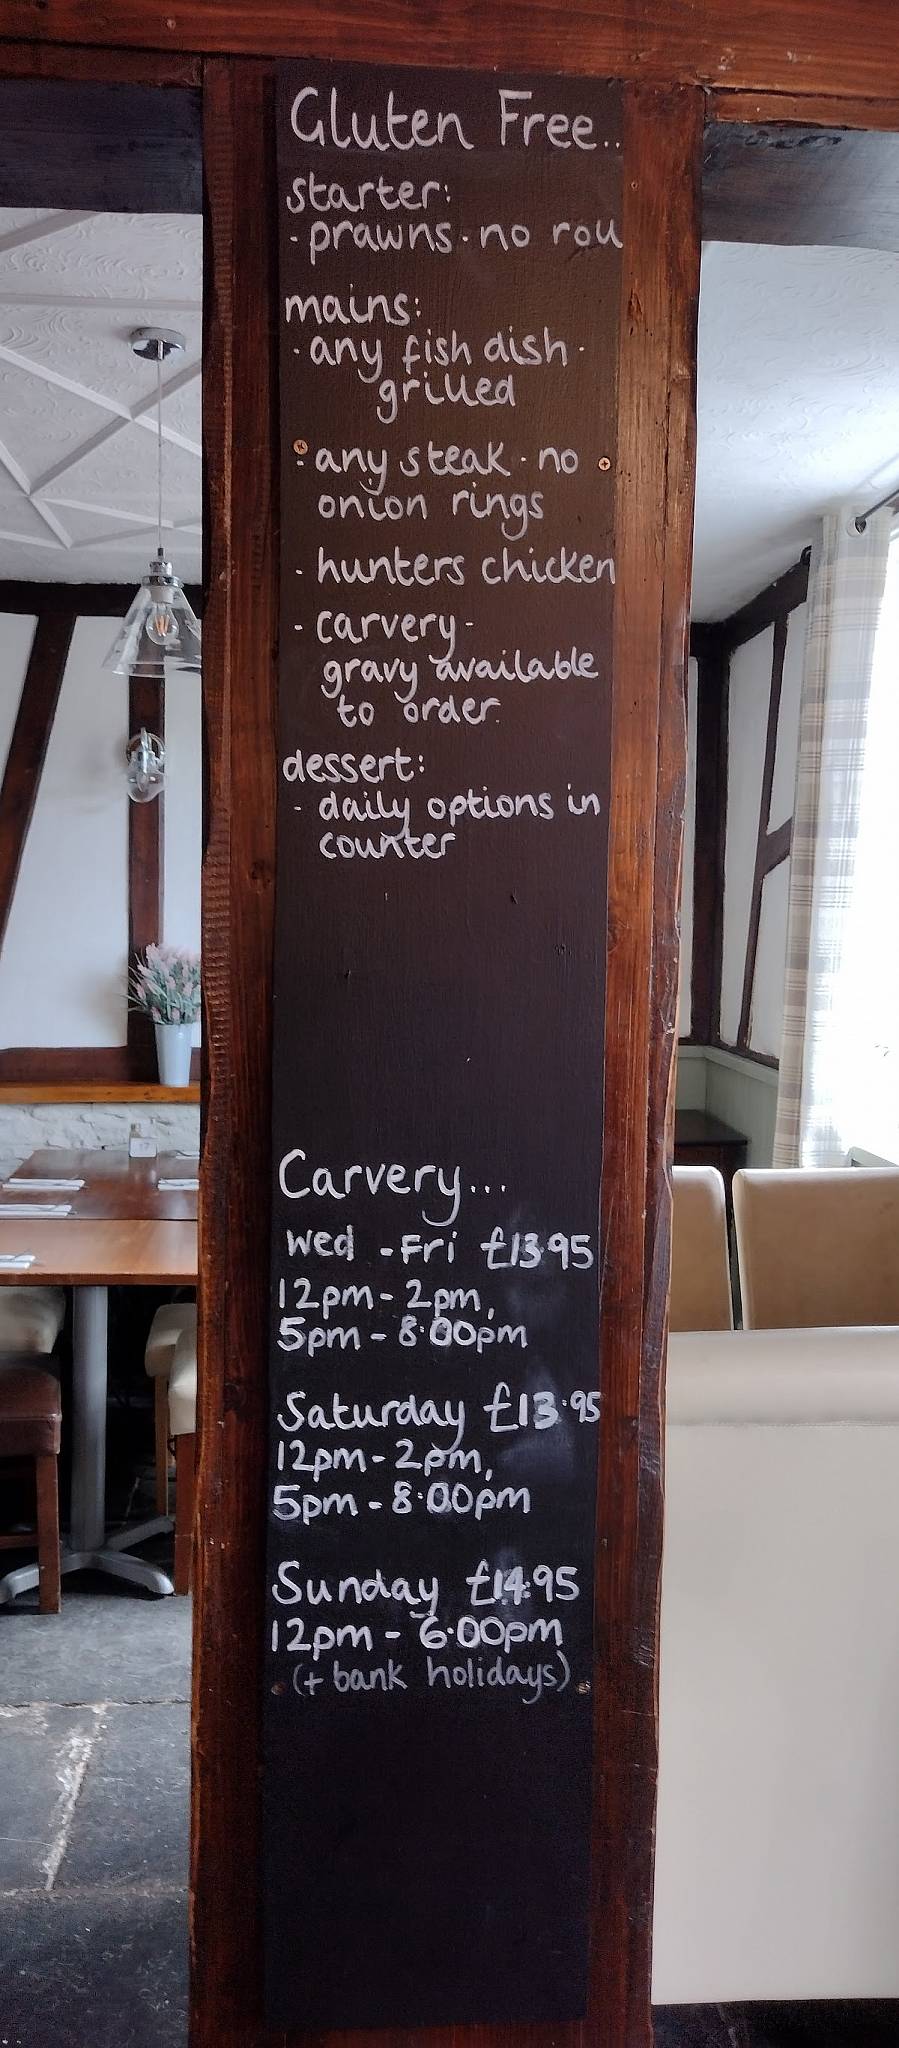 Gluten Free..
starter:
- prawns - no roll
mains:
- any fish dish -
grilled
- any steak - no
onion rings
- hunters chicken
- carvery -
gravy available
to order.
dessert:
- daily options in
counter
Carvery...
Wed - Fri £13.95
12pm - 2pm,
5pm - 8:00pm
Saturday £13.95
12pm - 2pm,
5pm - 8:00pm
Sunday £14.95
12pm - 6:00pm
(+ bank holidays)